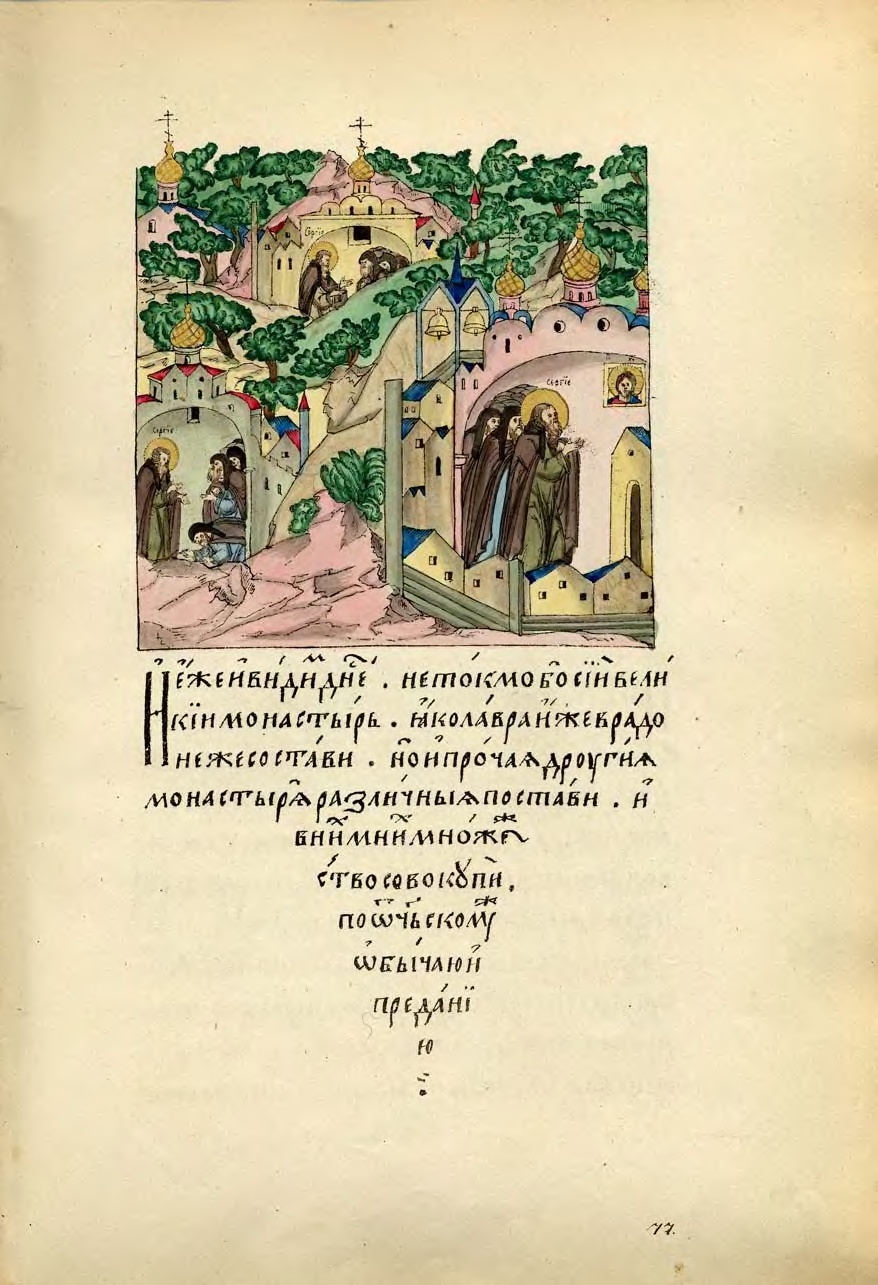 Сергїе
Сергїе
Сергїе
И҆́же и҆ ви́димъ и҆ днⷭ҇е . не токмо бо сїи вели
кїи монасты́рь . ꙗ҆́ко ла́вра и҆́же в ра́до
неже соста́ви . но и҆ про́чаѧ дроуги́ѧ
монастырѧ̀ разли́чныѧ поста́ви . и҆
в ниⷯ мниⷯ мно́же
ство совокꙋпѝ,
по ѡч҃ьскомꙋ
ѡ҆бы́чаю и҆
преда́нї
ю
77.